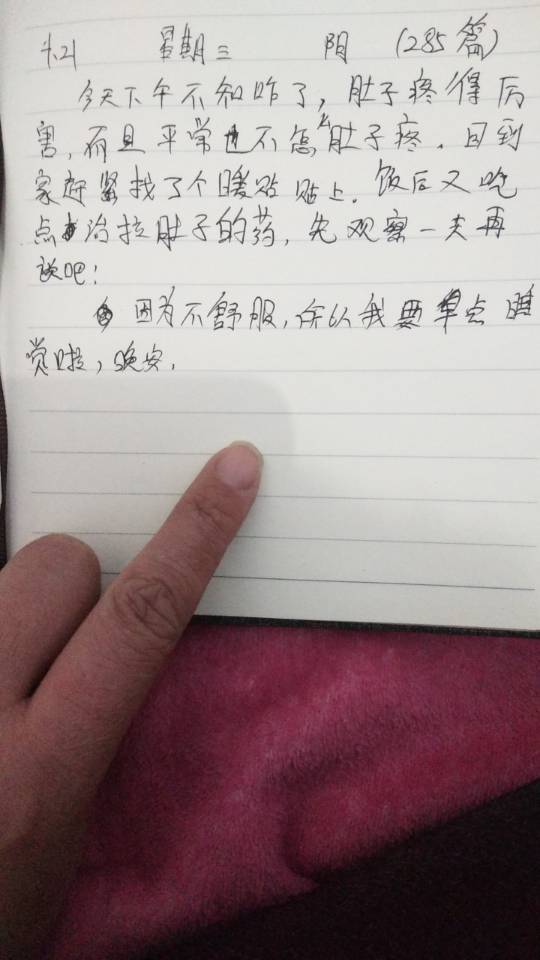 1.21 星期三 阴 (285篇)
今天下午不知咋了，肚子疼得厉
害，而且平常也不怎么肚子疼．回到
家赶紧找了个暖贴贴上．饭后又吃
点治拉肚子的药，先观察一夫再
说吧！
因为不舒服，所以我要早点睡
觉啦，晚安．